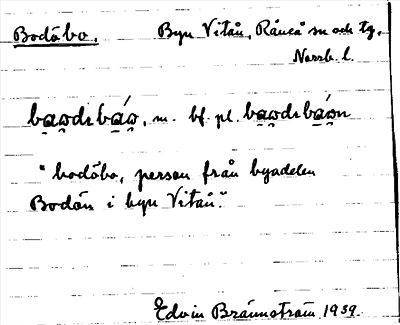 Bodåbo. Byn Vitån, Råneå sn och tg,
Norrb. l.
m. bf. pl.
"bodåbo, person från byadelen
Bodån i byn Vitån."
Edvin Brännström 1939.